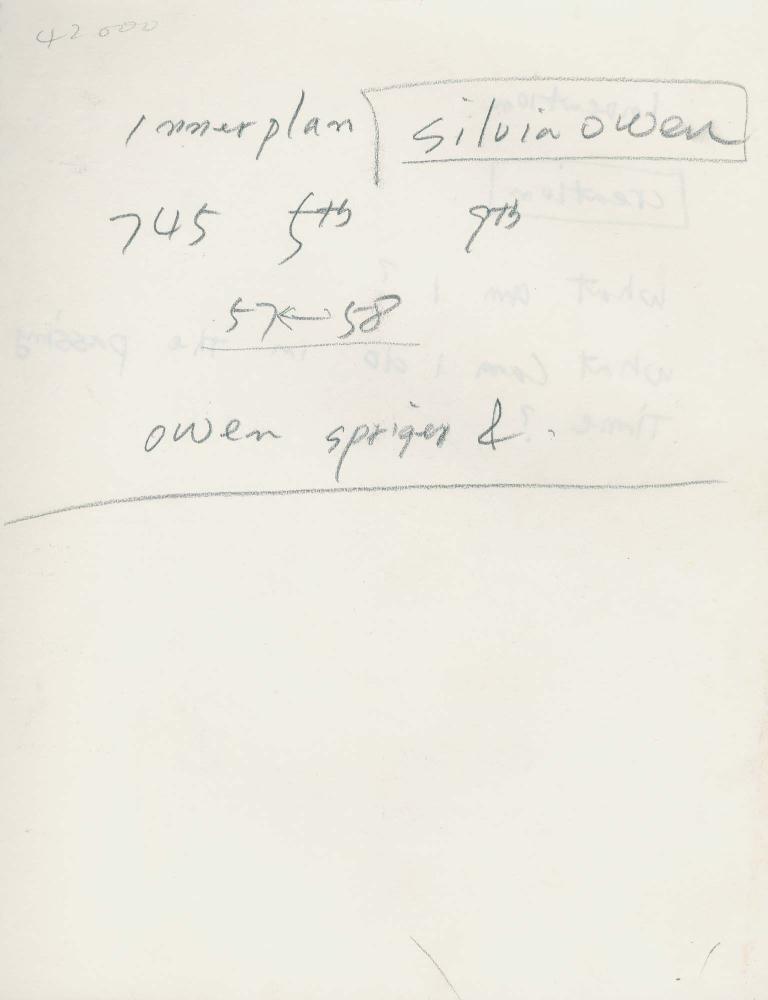 42000
Innerplan silvia owen
745 5th 9th
57 ← 58
owen spriger &.